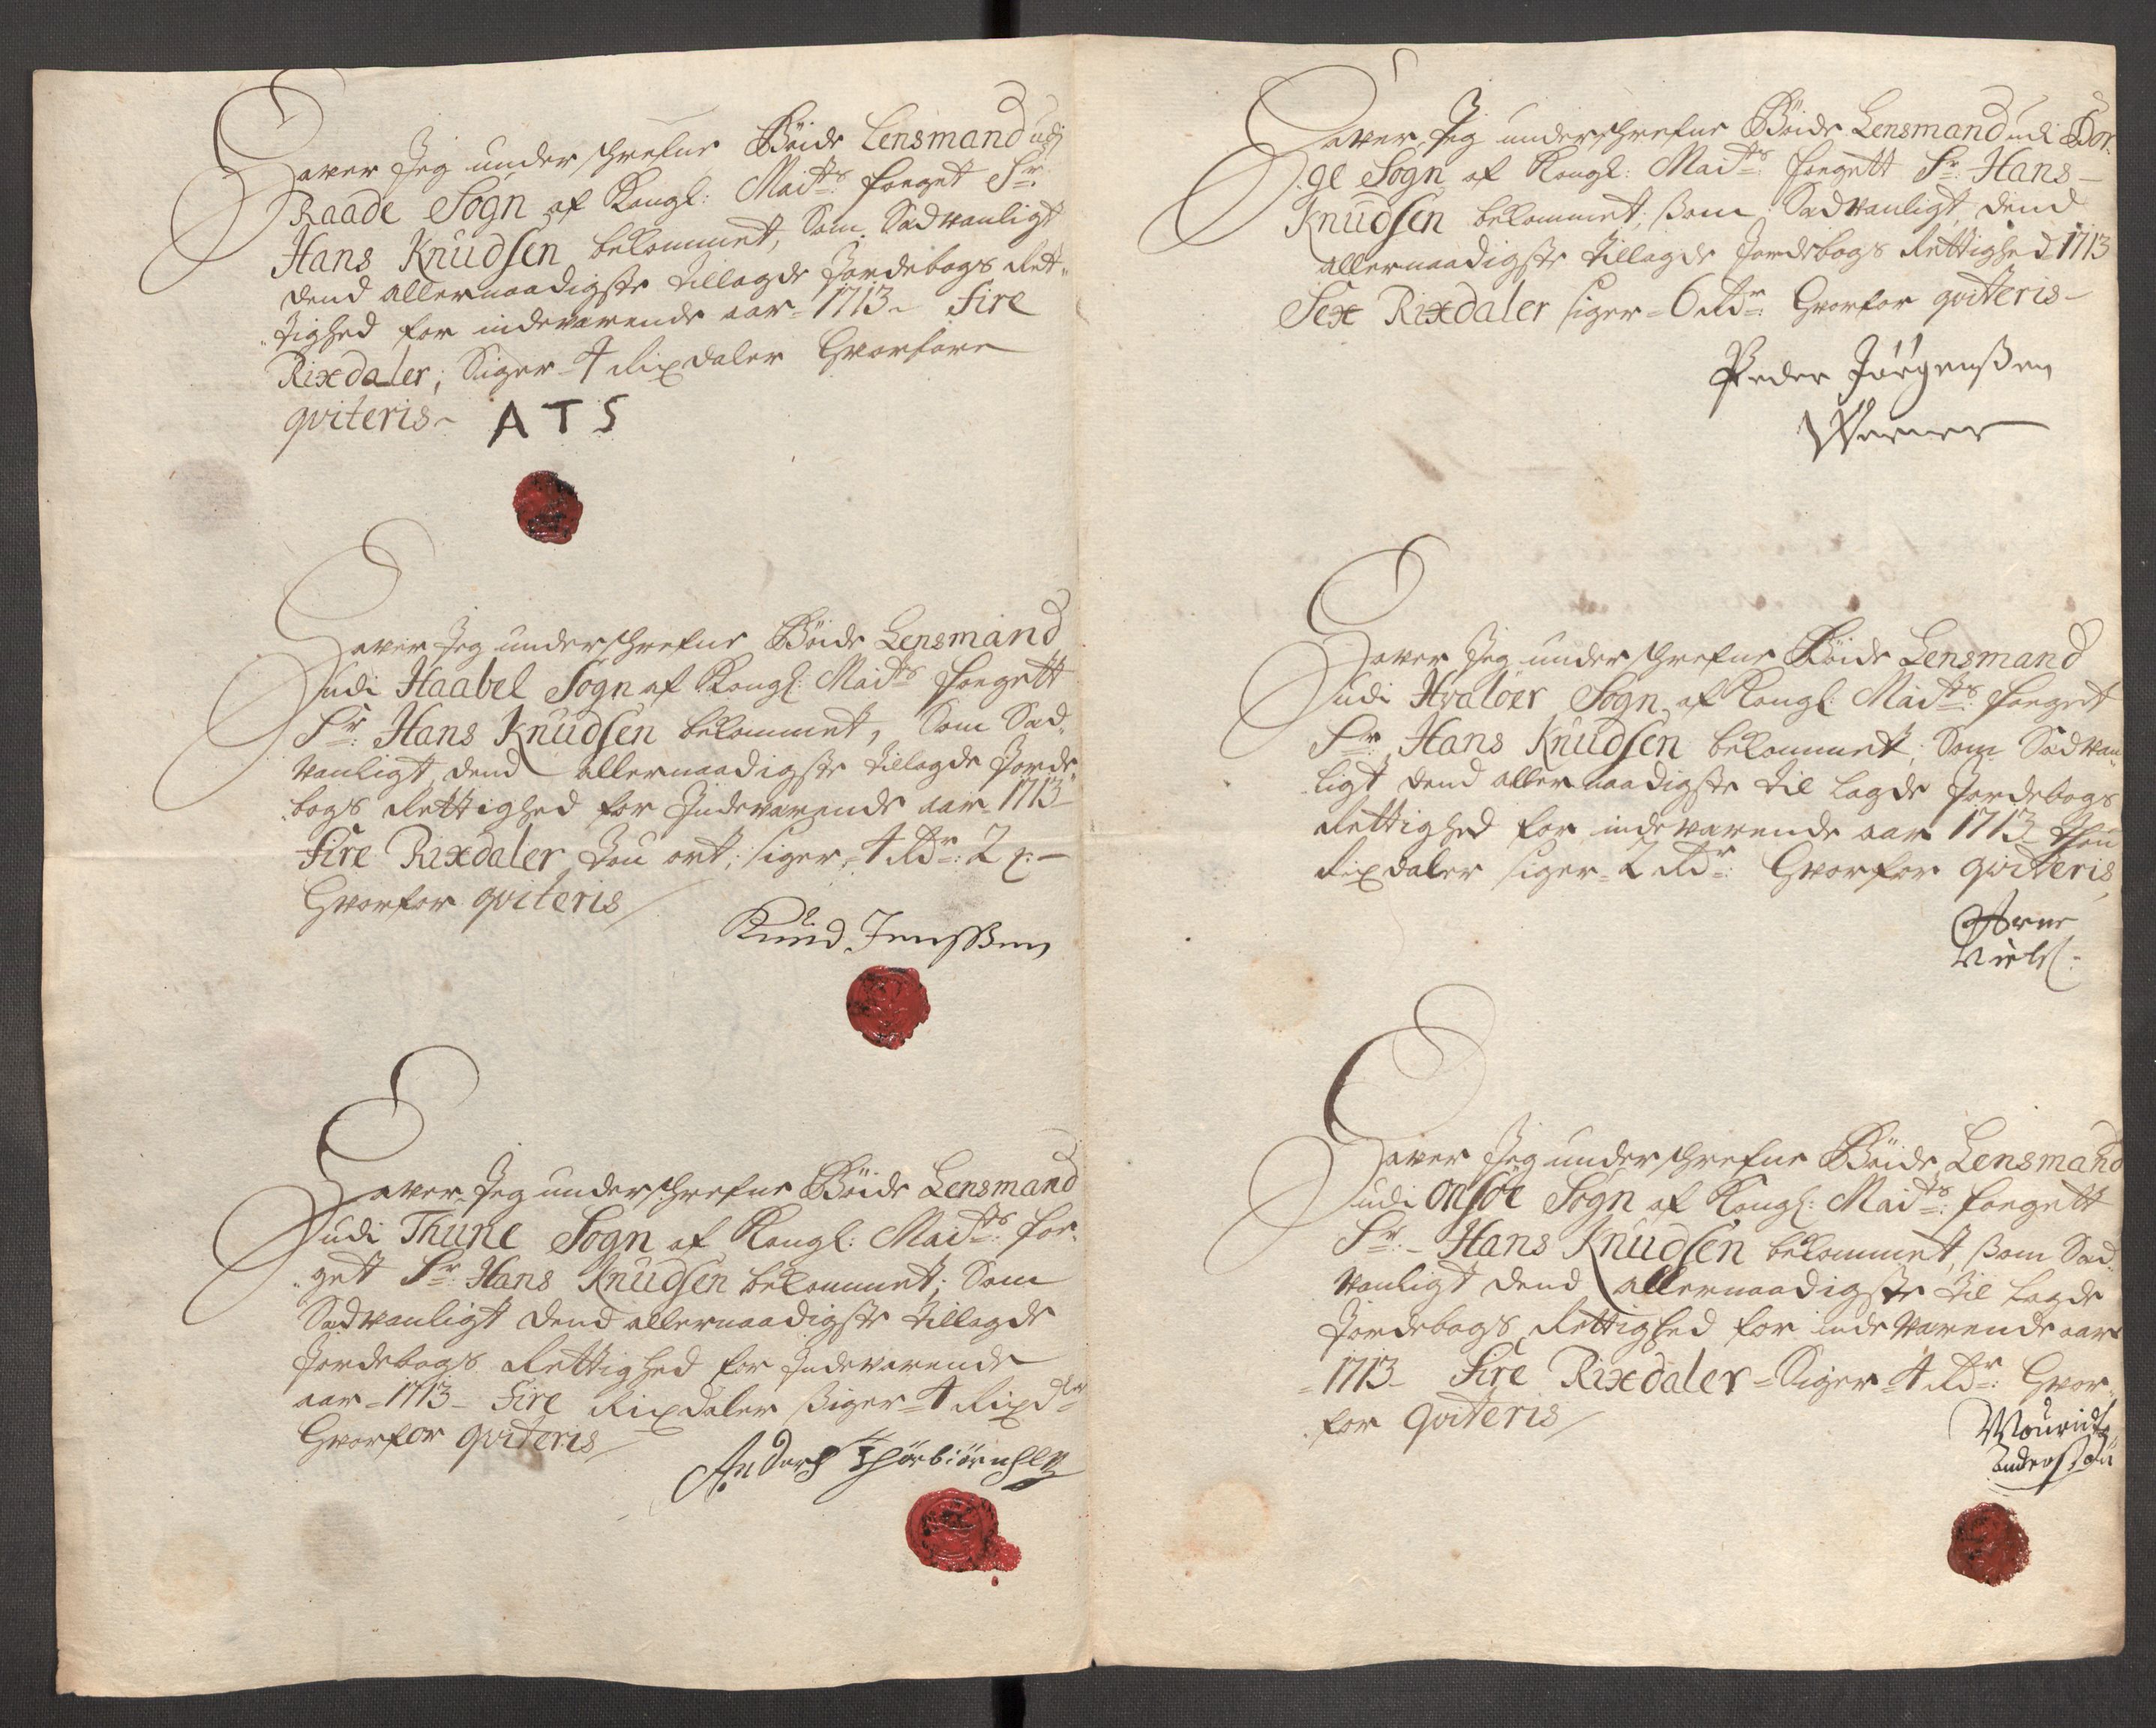 Haver Jeg underschrefne Böide Lensmand udj
Raade Sogn af Kongl: Maits: foeget Sr:
Hans Knudsen bekommet, Som Sædvanligt
dend allernaadigste tillagde Jordebogs Ret-
tighed for indeværende aar 1713 - Fire
Rixdaler, Siger 4 Rixdaler Hvorfore
qviteris -
ATS
Haver Jeg underschrefne Böide Lensmand
udi Haabel Sogn af Kongl: Maits foegett
Sr: Hans Knudsen bekommet, Som Sæd-
vanligt, dend allernaadigste tillagde Jorde-
bogs Rettighed for Indeværende aar 1713 -
Fire Rixdaler tou ort, siger, 4 Rdr: 2 -
Hvorfor qviteris
Knud Jenssen
Haver Jeg underschrefne Böide Lensmand
udi Thune Sogn af Kongl: Maits: foe-
get Sr: Hans Knudsen bekommet, Som
Sædvanligt dend allernaadigste tillagde
Jordebogs Rettighed for Indeværende
aar - 1713 - Fire Rixdaler Siger - 4 Rixdlr
Hvorfor qviteris
Anders Thorbiörnsen
Haver Jeg underschrefne Böide Lensmand udi Bor-
ge Sogn af Kongl: Maits: foegett Sr: Hans -
Knudsen bekommet, som Sædvanligt, dend
allernaadigste tillagde Jordebogs Rettighed 1713
Sex Rixdaler siger - 6 Rdr: Hvorfor qviteris -
Peder Jörgensen
Werner
Haver Jeg underschrefne Böide Lensmand
udi Hvaloer Sogn af Kongl: Maits: foeget
Sr: Hans Knudsen bekommet, Som Sædvan-
ligt dend allernaadigste til lagde Jordebogs
Rettighed for indeværende aar 1713 Thou
Rixdaler siger - 2 Rdr: Hvorfor qviteris
Arne
Niels:
Haver Jeg underschrefne Böide Lensmand
udi Onsöe Sogn af Kongl: Maits: foegett
Sr: - Hans Knudsen bekommet, som Sæd-
vanligt dend allernaadigste til lagde
Jordebogs Rettighed for indeværende aar
- 1713 - Fire Rixdaler - Siger - 4 Rdr: Hvor-
for qviteris
Mouridts
Anderssøn